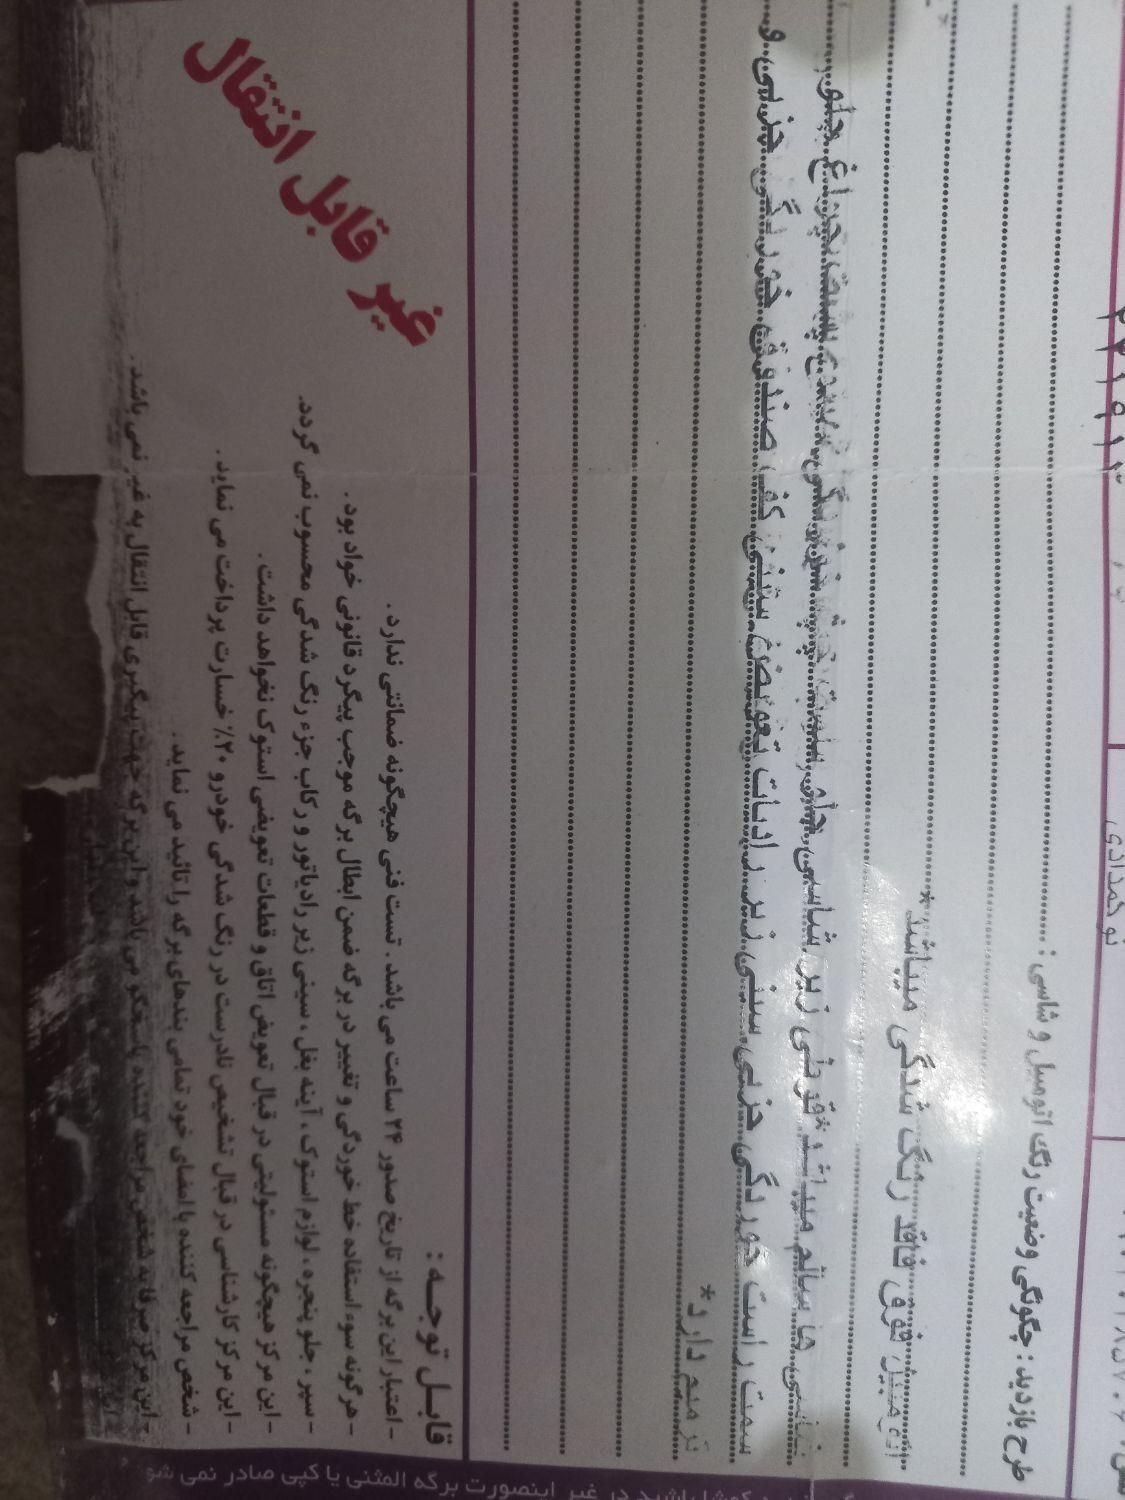 طرح بازدید : چگونگی وضعیت رنگ اتومبیل و شاسی :
اتومبیل فوق فاقد رنگ شدگی میباشد*
شاسی ها سالم میباشد فرنی زیر شاسی جلو راست خوردگی سینی پشت چراغ جلو
سمت راست خوردگی جزیی سینی زیر رادیات تعویض سینی کف صندوق خوردگی جزیی و
ترمیم دارد*
قابل توجه :
- اعتبار این برگه از تاریخ صدور ۲۴ ساعت می باشد . تست فنی هیچگونه ضمانتی ندارد .
- هرگونه سوء استفاده خط خوردگی و تغییر در برگه ضمن ابطال برگه موجب پیگرد قانونی خواد بود .
- سپر ، جلو پنجره ، لوازم استوک ، آینه بغل ، سینی زیر رادیاتور و رکاب جزء رنگ شدگی محسوب نمی گردد.
- این مرکز هیچگونه مسئولیتی در قبال تعویض اتاق و قطعات تعویضی استوک نخواهد داشت .
- این مرکز کارشناسی در قبال تشخیص نادرست در رنگ شدگی خودرو ۲۰٪ خسارت پرداخت می نماید .
- شخص مراجعه کننده با امضای خود تمامی بندهای برگه را تائید می نماید .
- این مرکز صرفا به شخص مراجعه کننده پاسخگو می باشد و این برگه جهت پیگیری قابل انتقال به غیر نمی باشد .
غیر قابل انتقال
در غیر اینصورت برگه المثنی یا کپی صادر نمی شو